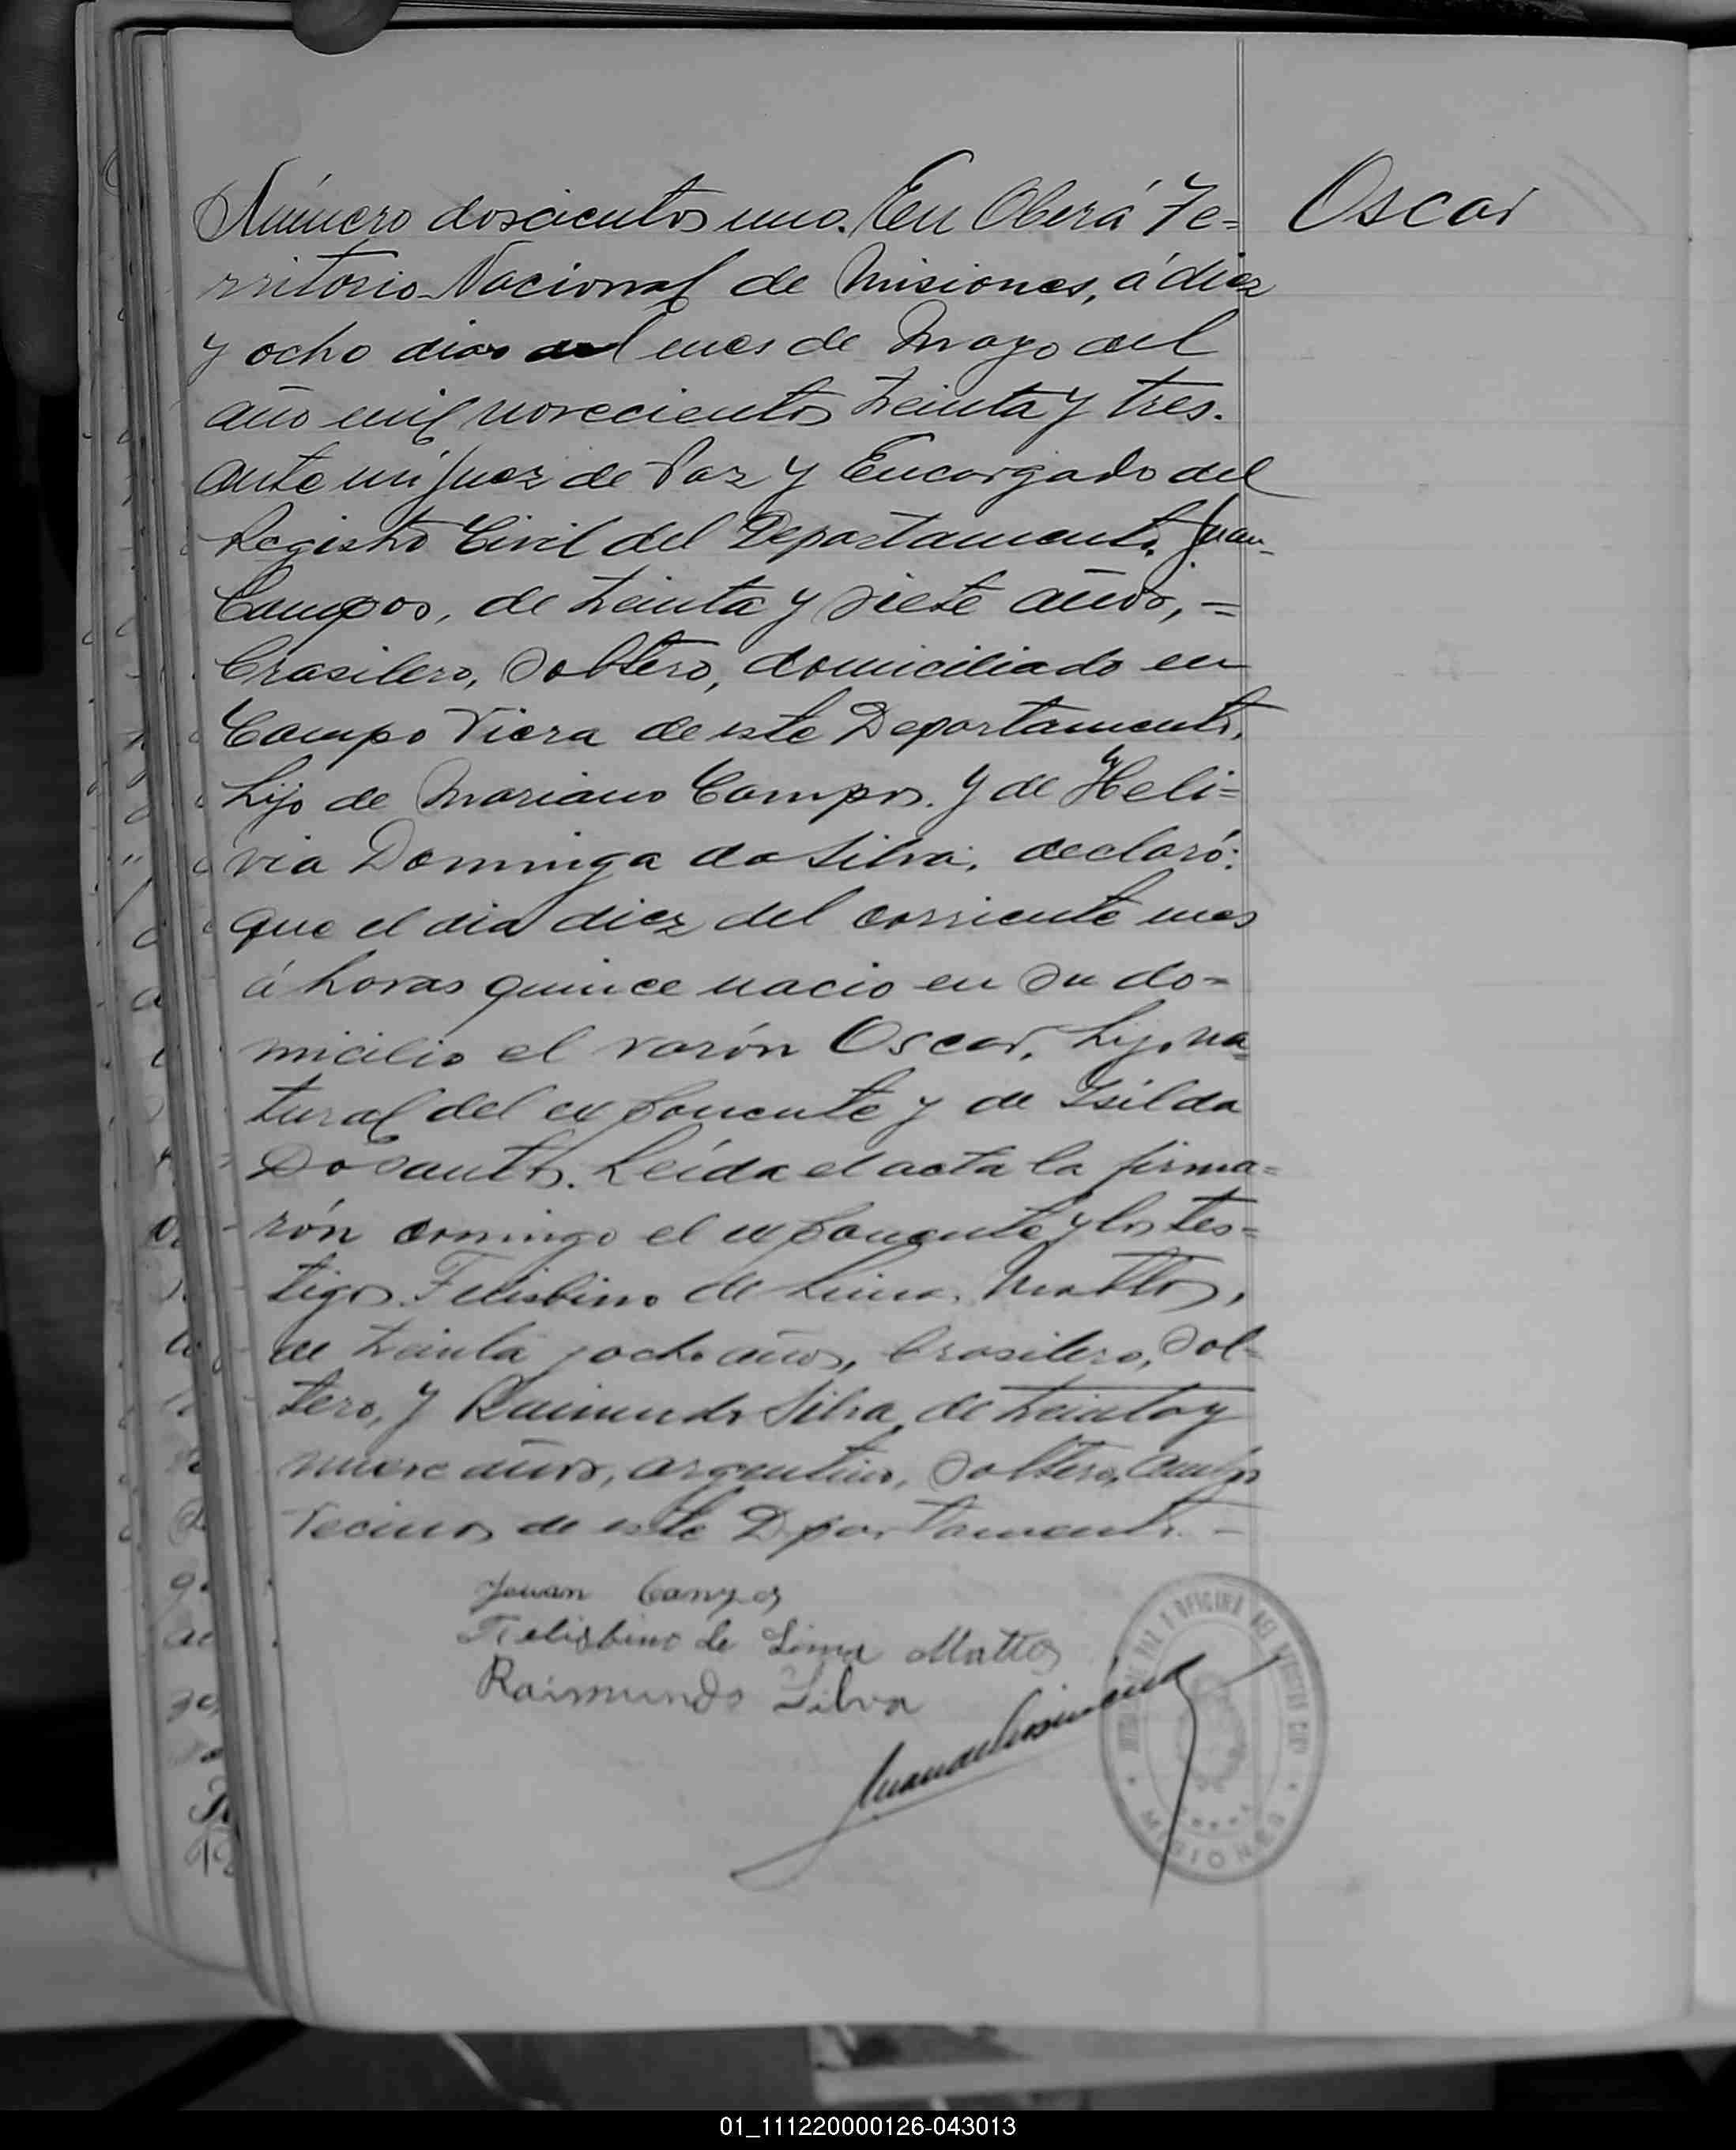 Número doscientos uno. En Oberá Te= Oscar
rritorio Nacional de Misiones, á diez
y ocho dias del mes de Mayo del
año mil novecientos treinta y tres.
ante mi Juez de Paz y Encargado del
Registro Civil del Departamento. Juan
Campos, de treinta y siete años, =
brasilero, soltero, domiciliado en
Campo Viera de este Departamento,
hijo de Mariano Campos. y de Heli=
via Dominga da Silva, declaró:
que el dia diez del corriente mes
á horas quince nacio en su do=
micilio el varón Oscar, hijo na=
tural del exponente y de Isilda
Dosantos. Leída el acta la firma=
rón conmigo el exponente y los tes=
tigos Felisbino de Lima Mattos,
de treinta y ocho años, brasilero, sol=
tero, y Raimundo Silva, de treinta y
nueve años, argentino, soltero, ambos
vecinos de este Departamento. -
Jouan Campos
Felisbino de Lima Mattos
Raimundo Silva
JUZGADO DE PAZ Y OFICINA DEL REGISTRO CIVIL
MISIONES
01_111220000126-043013